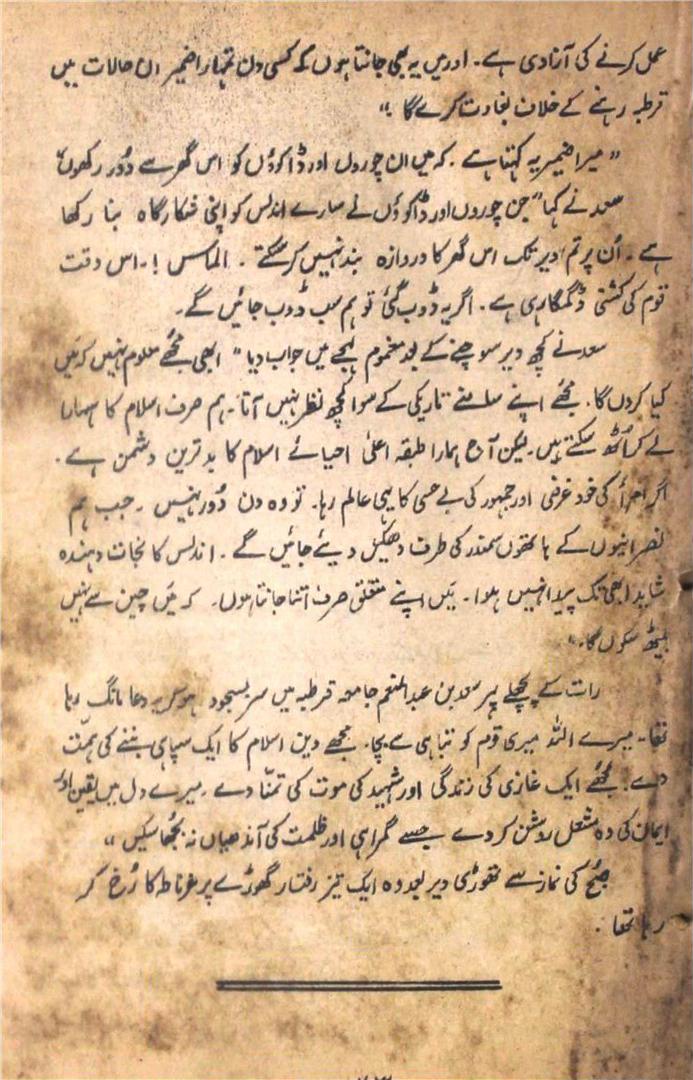 عمل کرنے کی آزادی ہے۔ اور میں یہ بھی جانتا ہوں کہ کسی دن تمہارا ضمیر ان حالات میں
قرطبہ رہنے کے خلاف بغاوت کرے گا۔"
"میرا ضمیر یہ کہتا ہے۔ کہ میں ان چوروں اور ڈاکوؤں کو اس گھر سے دُور رکھوں"
سعد نے کہا "جن چوروں اور ڈاکوؤں نے سارے اندلس کو اپنی شکار گاہ بنا رکھا
ہے۔ اُن پر تم دیر تک اس گھر کا دروازہ بند نہیں کر سکتے۔ الماس!۔ اس وقت
قوم کی کشتی ڈگمگا رہی ہے۔ اگر یہ ڈوب گئی تو ہم سب ڈوب جائیں گے۔
سعد نے کچھ دیر سوچنے کے بعد مغموم لہجے میں جواب دیا "ابھی مجھے معلوم نہیں کہ میں
کیا کروں گا۔ مجھے اپنے سامنے تاریکی کے سوا کچھ نظر نہیں آتا۔ ہم صرف اسلام کا سہارا
لے کر اُٹھ سکتے ہیں۔ لیکن آج ہمارا طبقہ اعلیٰ احیائے اسلام کا بدترین دشمن ہے۔
اگر امرأ کی خود غرضی اور جمہور کی بے حسی کا یہی عالم رہا۔ تو وہ دن دُور نہیں۔ جب ہم
نصرانیوں کے ہاتھوں سمندر کی طرف دھکیل دیئے جائیں گے۔ اندلس کا نجات دہندہ
شاید ابھی تک پیدا نہیں ہوا۔ میں اپنے متعلق صرف اتنا جانتا ہوں۔ کہ میں چین سے نہیں
بیٹھ سکوں گا۔"
رات کے پچھلے پہر سعد بن عبدالمنعم جامعہ قرطبہ میں سر بسجود ہو کر یہ دعا مانگ رہا
تھا۔ میرے اللہ میری قوم کو تباہی سے بچا۔ مجھے دین اسلام کا ایک سپاہی بننے کی ہمّت
دے۔ مجھے ایک غازی کی زندگی اور شہید کی موت کی تمنّا دے۔ میرے دل میں یقین اور
ایمان کی وہ مشعل روشن کر دے جسے گمراہی اور ظلمت کی آندھیاں نہ بجُھا سکیں"
صُبح کی نماز سے تھوڑی دیر بعد وہ ایک تیز رفتار گھوڑے پر غرناطہ کا رُخ کر
رہا تھا۔